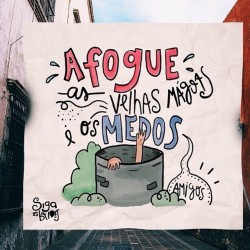 AFOGUE
as velhas mágoas
e os MEDOS
AMIGOS
Siga
os